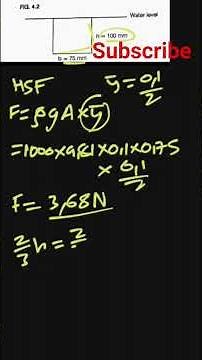 FIG. 4.2
Water level
h = 100 mm
Subscribe
b = 75 mm
HSF ȳ = 0,1/2
F = ρgA × ȳ
= 1000×9,81×0,1×0,175
× 0,1/2
F = 3,68N
2/3 h = 2/